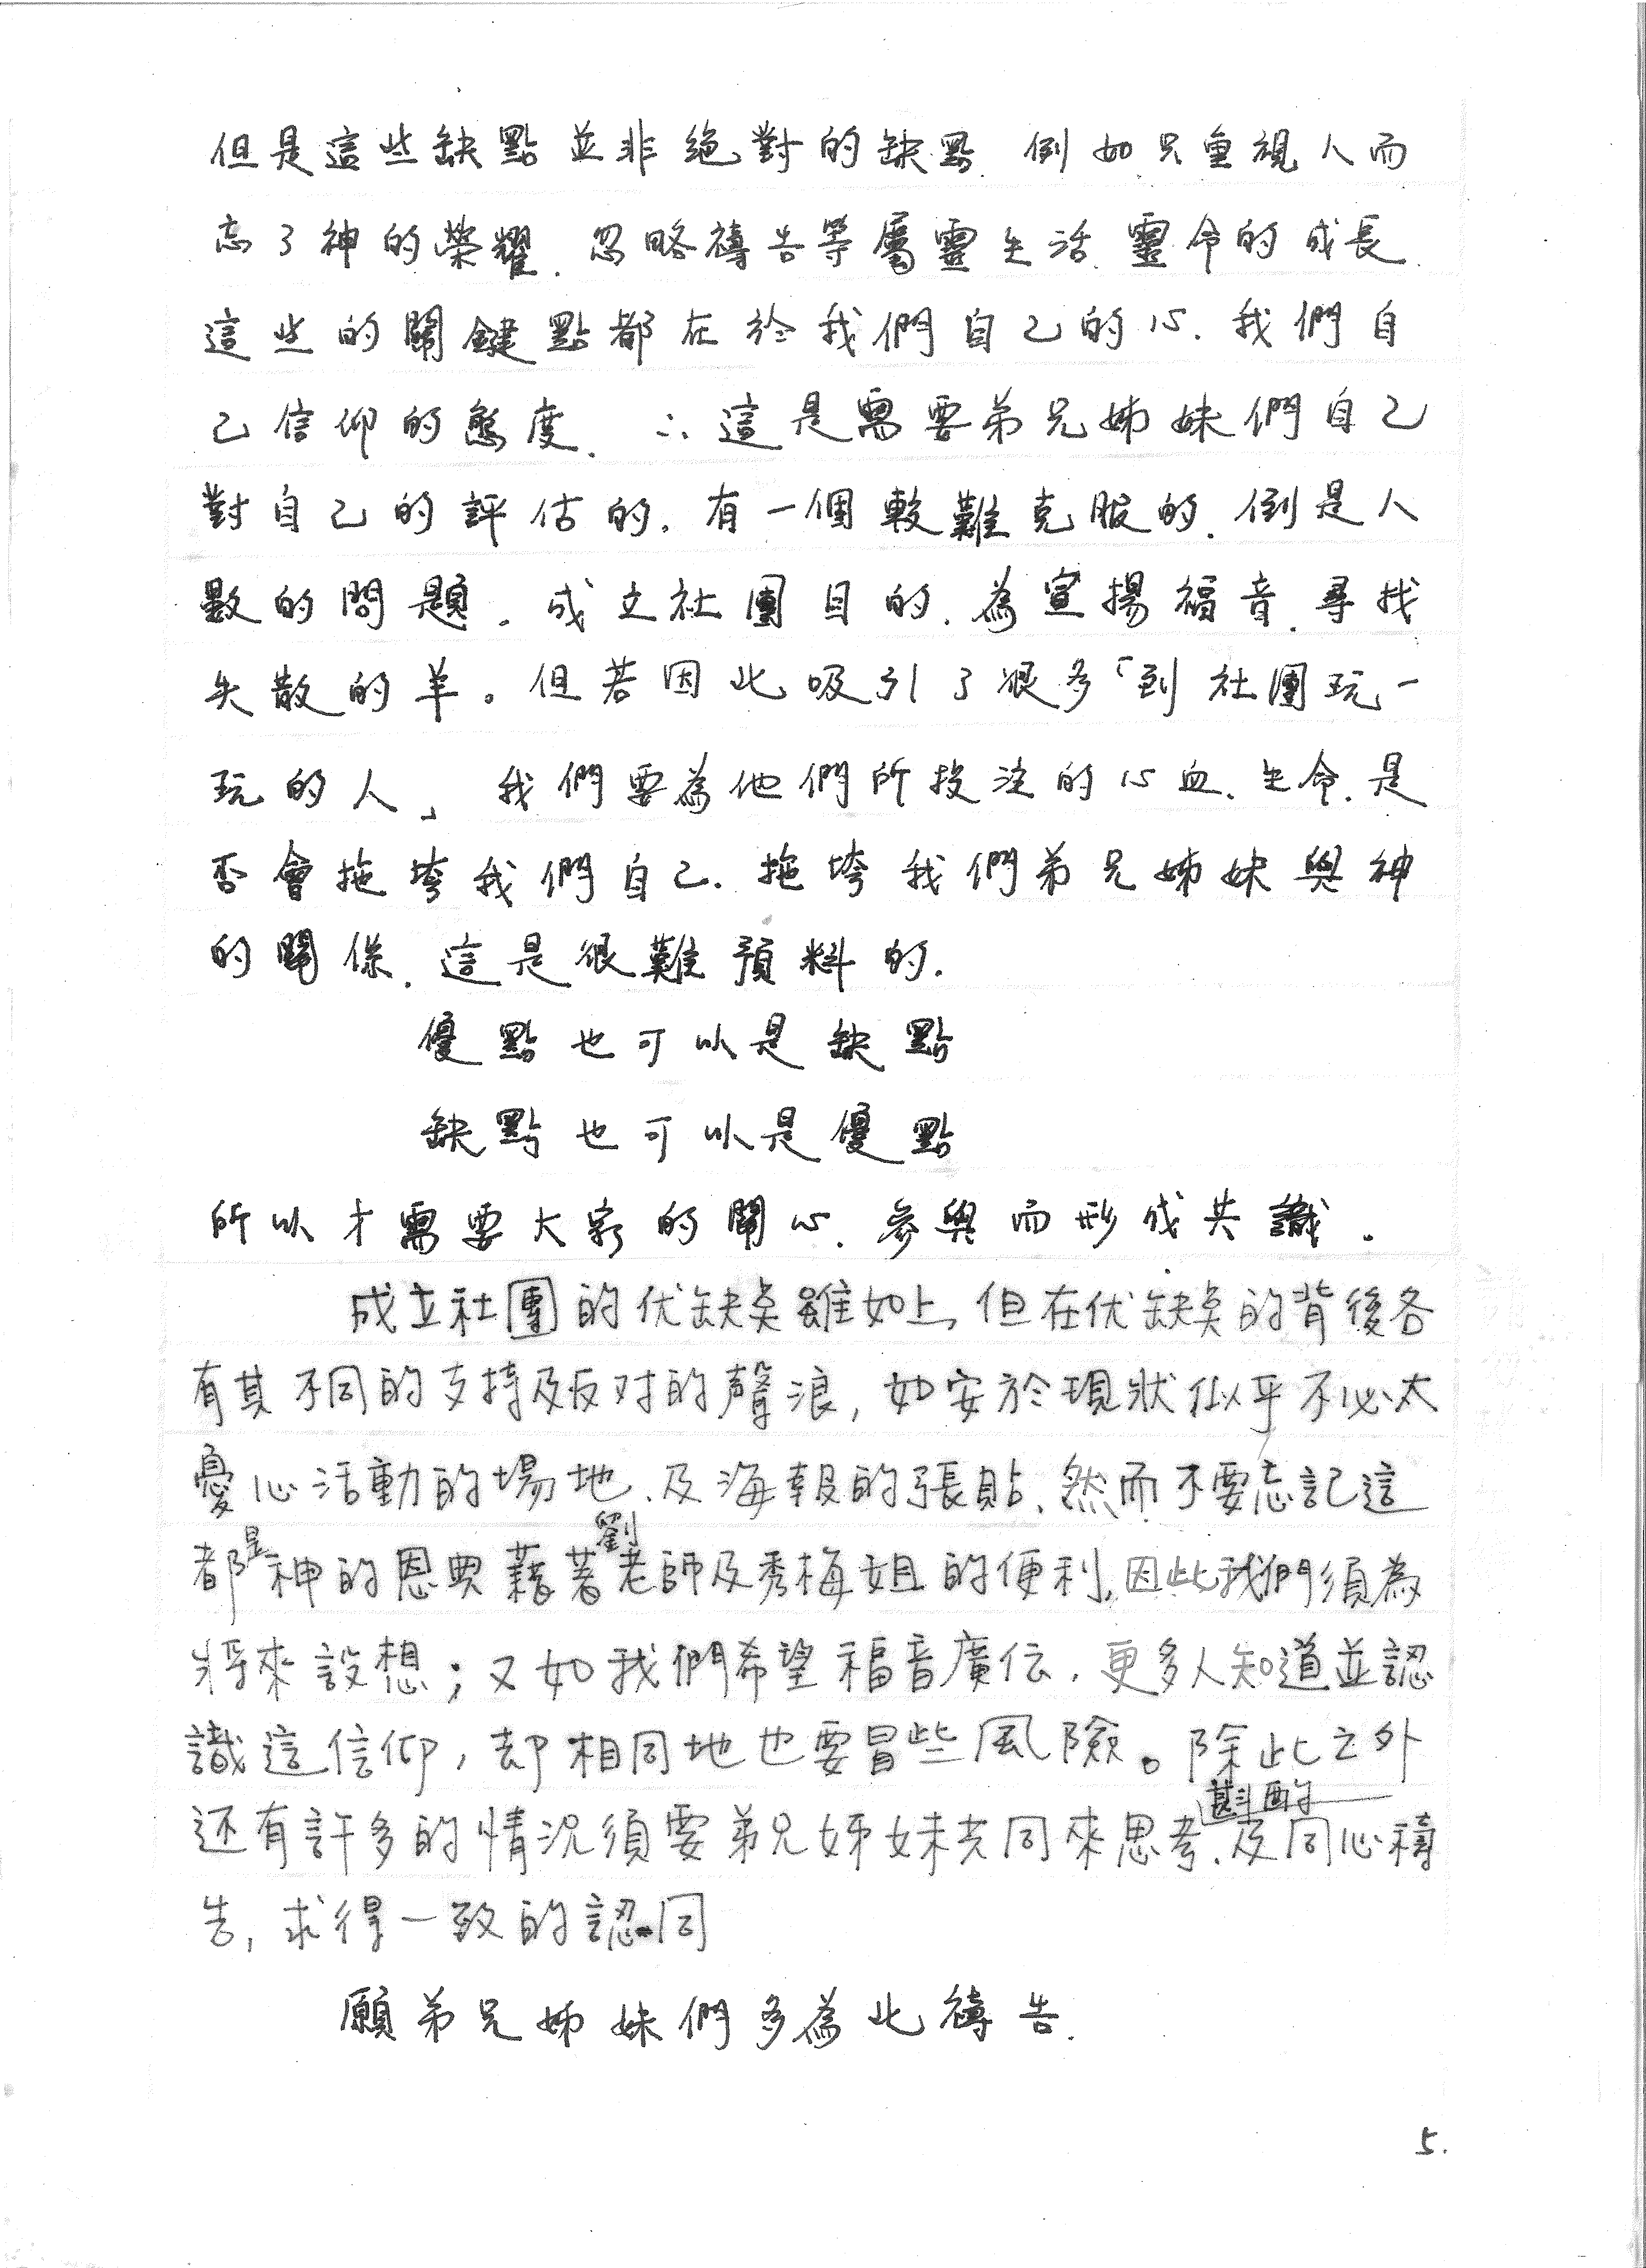 但是這些缺點並非絕對的缺點.例如只重視人而
忘了神的榮耀.忽略禱告等屬靈生活.靈命的成長.
這些的關鍵點都在於我們自己的心.我們自
己信仰的態度.∴這是需要弟兄姊妹們自己
對自己的評估的.有一個較難克服的.倒是人
數的問題.成立社團目的.為宣揚福音.尋找
失散的羊。但若因此吸引了很多「到社團玩一
玩的人」我們要為他們所投注的心血.生命.是
否會拖垮我們自己.拖垮我們弟兄姊妹與神
的關係.這是很難預料的.
優點也可以是缺點
缺點也可以是優點
所以才需要大家的關心.參與而形成共識.
成立社團的优缺點雖如上,但在优缺點的背後各
有其不同的支持及反对的聲浪,如安於現狀似乎不必太
憂心活動的場地.及海報的張貼.然而不要忘記這
都是神的恩典藉著劉老師及秀梅姐的便利,因此我們須為
將來設想;又如我們希望福音廣伝.更多人知道並認
識這信仰,却相同地也要冒些風險。除此之外
还有許多的情況須要弟兄姊妹共同來思考.斟酌及同心禱
告,求得一致的認同
願弟兄姊妹們多為此禱告.
5.